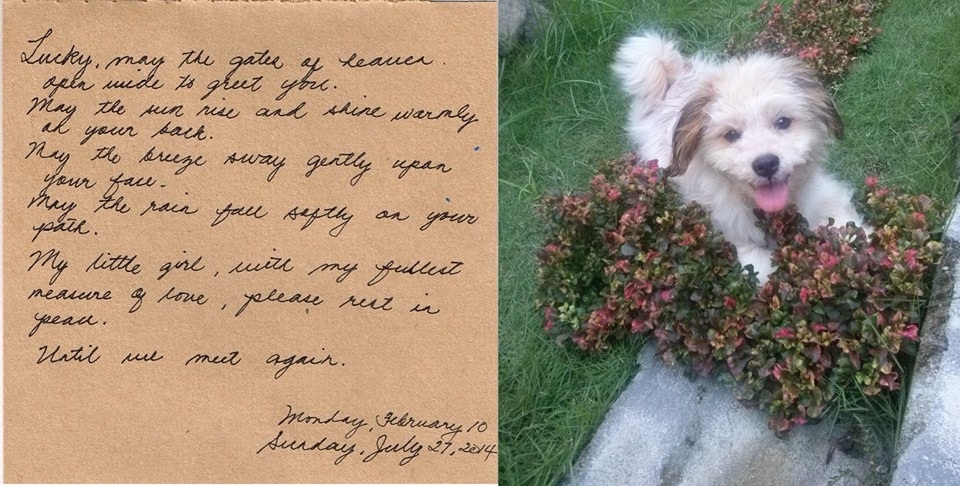 Lucky, may the gates of heaven
open wide to greet you.
May the sun rise and shine warmly
on your back.
May the breeze sway gently upon
your face.
May the rain fall softly on your
path.
My little girl, with my fullest
measure of love, please rest in
peace.
Until we meet again.
Monday, February 10
Sunday, July 27, 2014